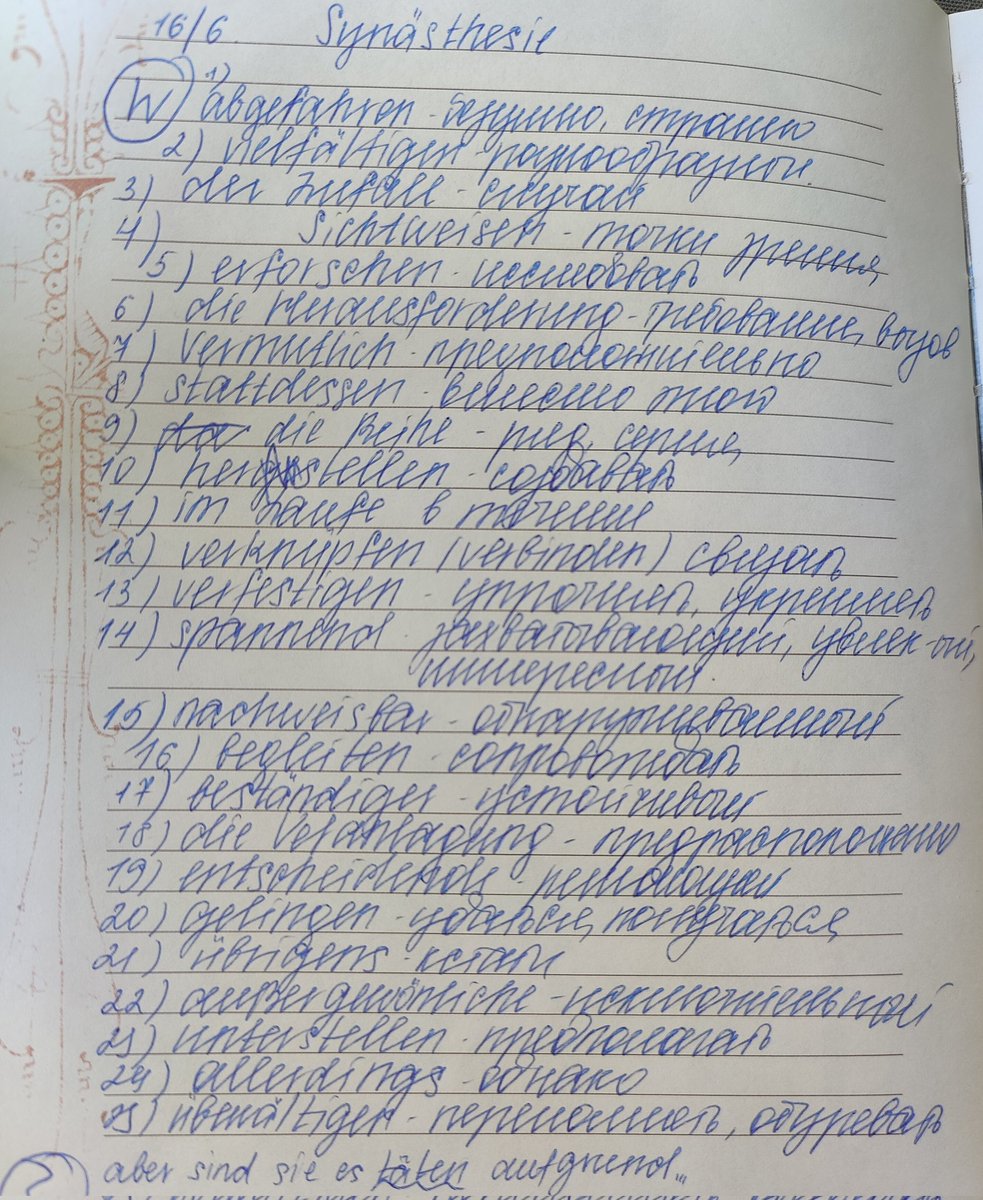 16/6. Synästhesie
W 1) abgefahren - безумно, странно
2) vielfältiger разнообразной.
3) der Zufall - случай
4) Sichtweisen - точки зрения
5) erforschen - исследовать
6) die Herausforderung - требование, вызов
7) vermutlich - предположительно
8) stattdessen - вместо этого
9) die Reihe - ряд, серия
10) herstellen - создавать
11) im Laufe в течение
12) verknüpfen (verbinden) связать
13) verfestigen - упрочнять, укреплять
14) spannend - захватывающий, увлек-ый,
интересный.
15) nachweisbar - обнаруживаемый
16) begleiten - сопровождать
17) beständiger - устойчивый
18) die Veranlagung - предрасположение
19) entscheidende - решающая
20) gelingen - удаться, получаться
21) übrigens - кстати
22) außergewönliche - исключительный
23) unterstellen - предполагать
24) allerdings - однако
25) überwältigen - переполнять, обуревать
aber sind sie es täten aufgrund...